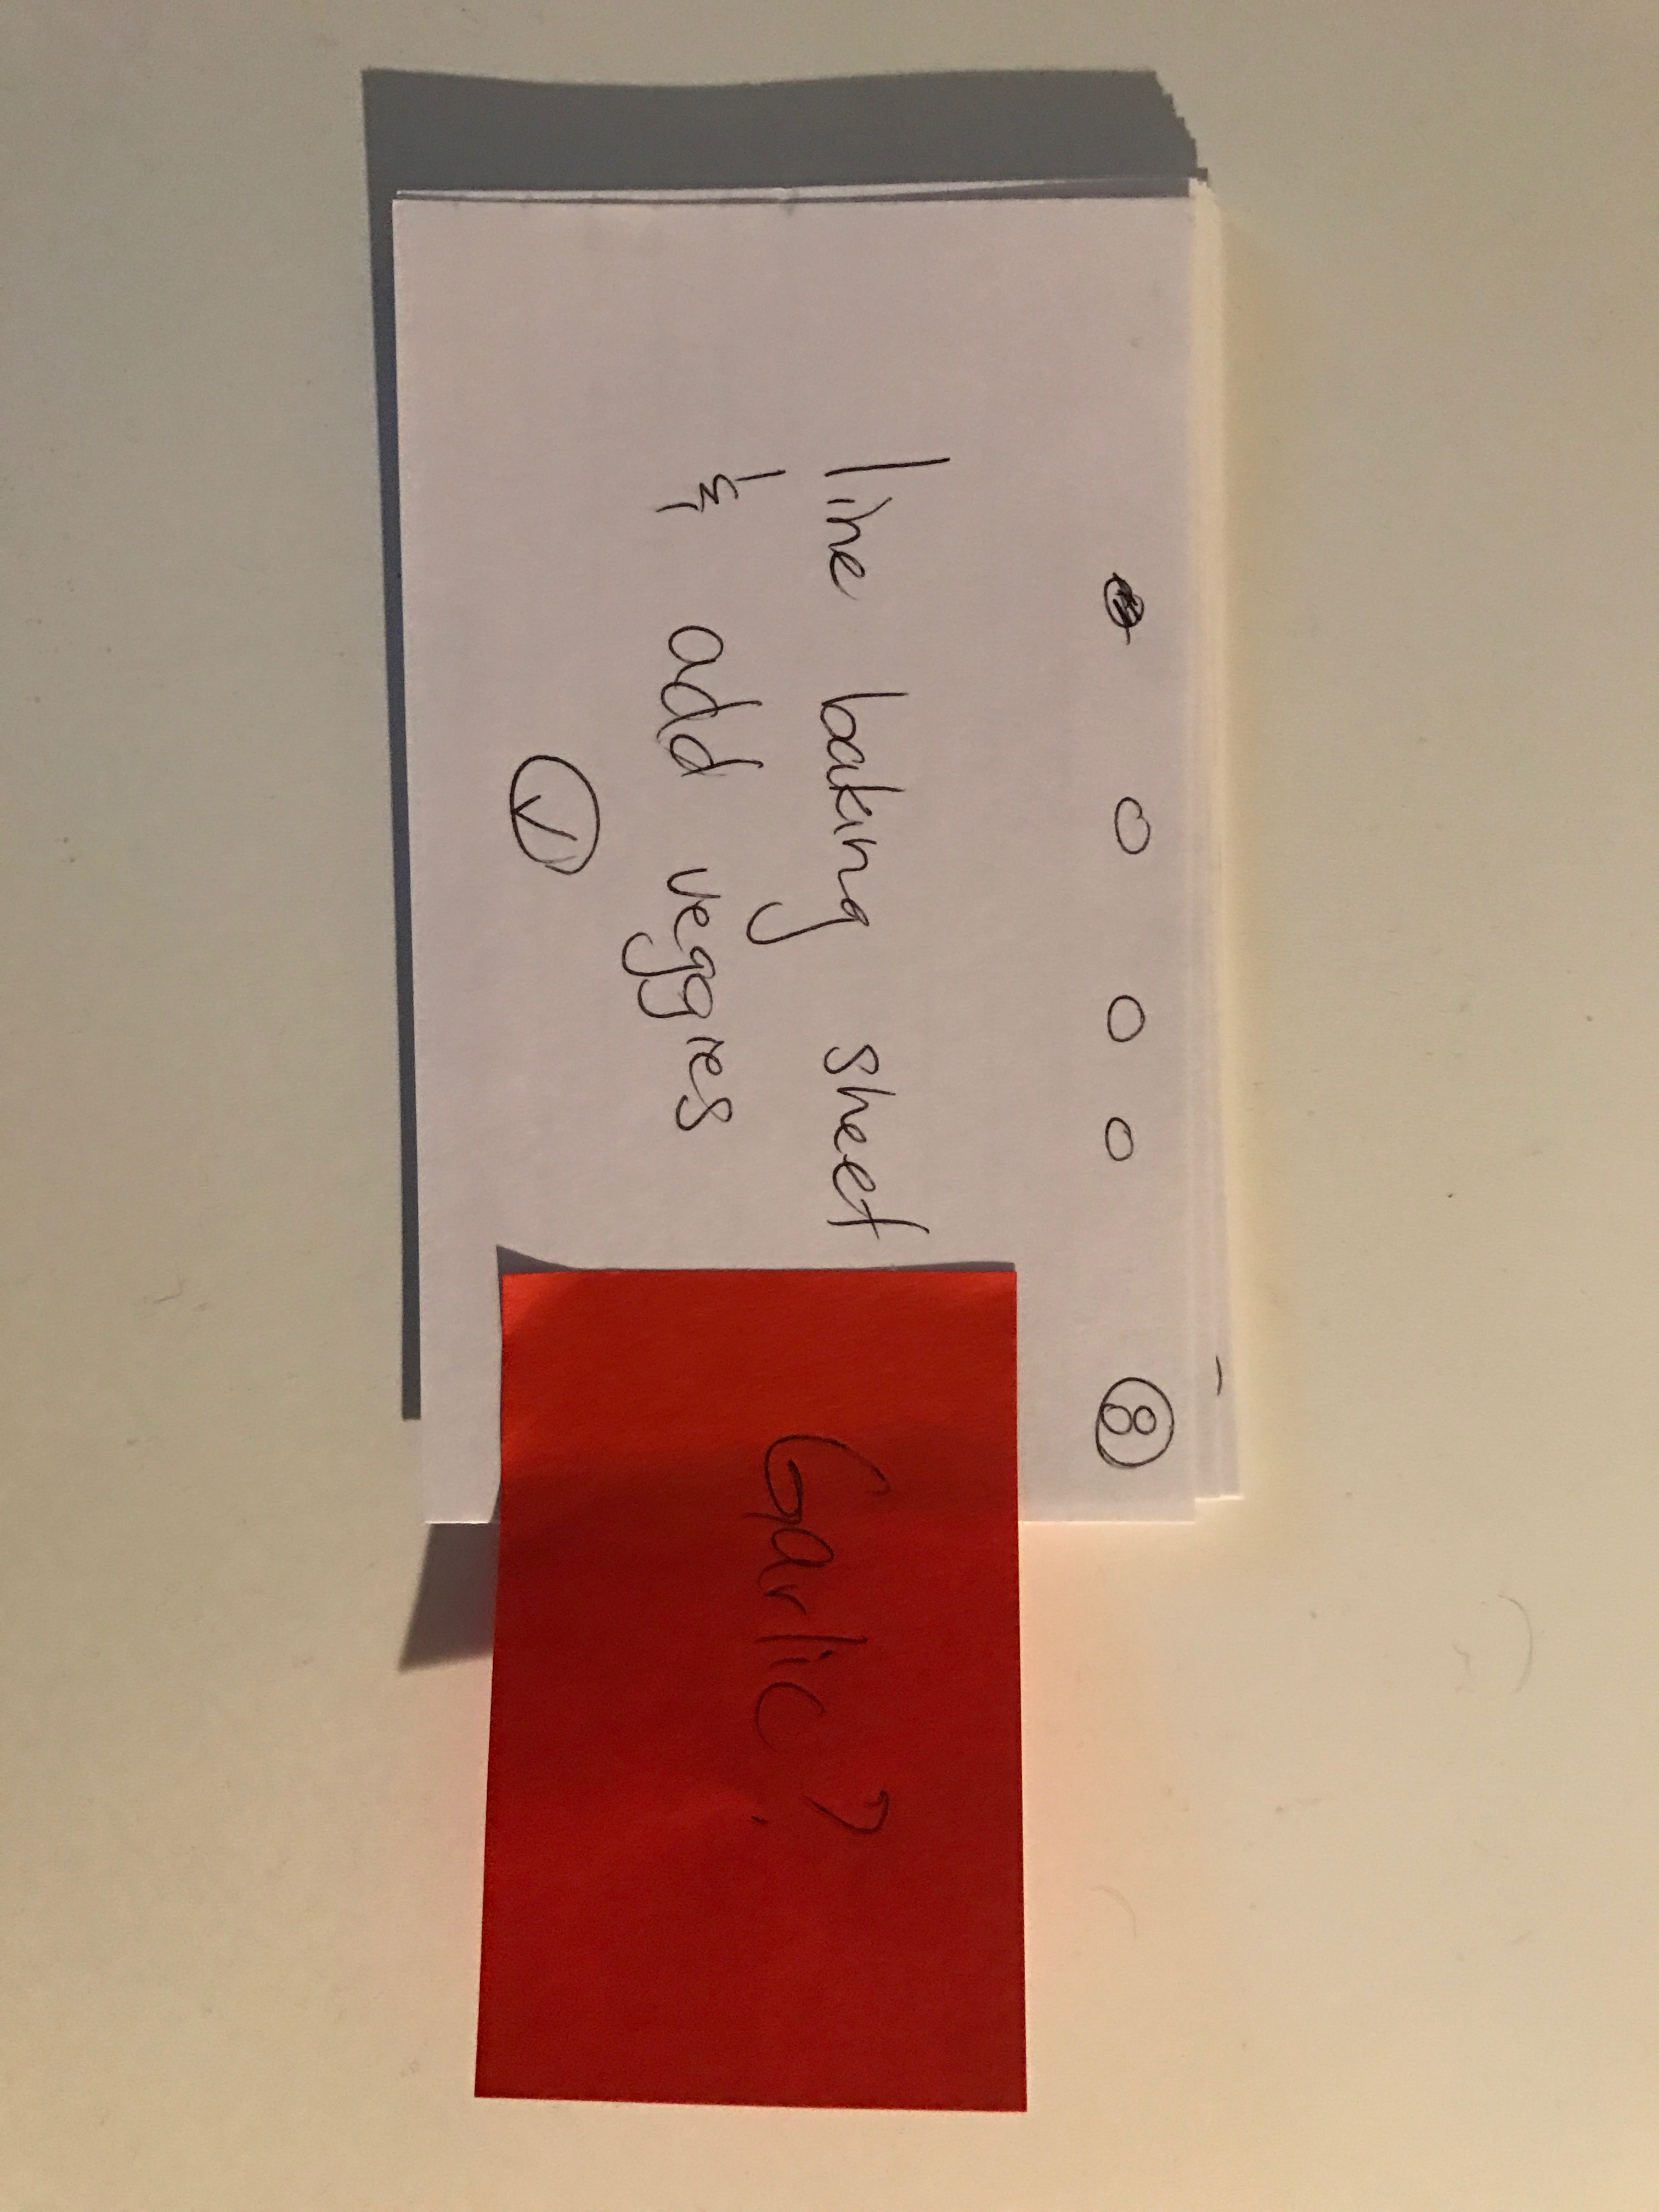 8
line baking sheet
& add veggies
Garlic?